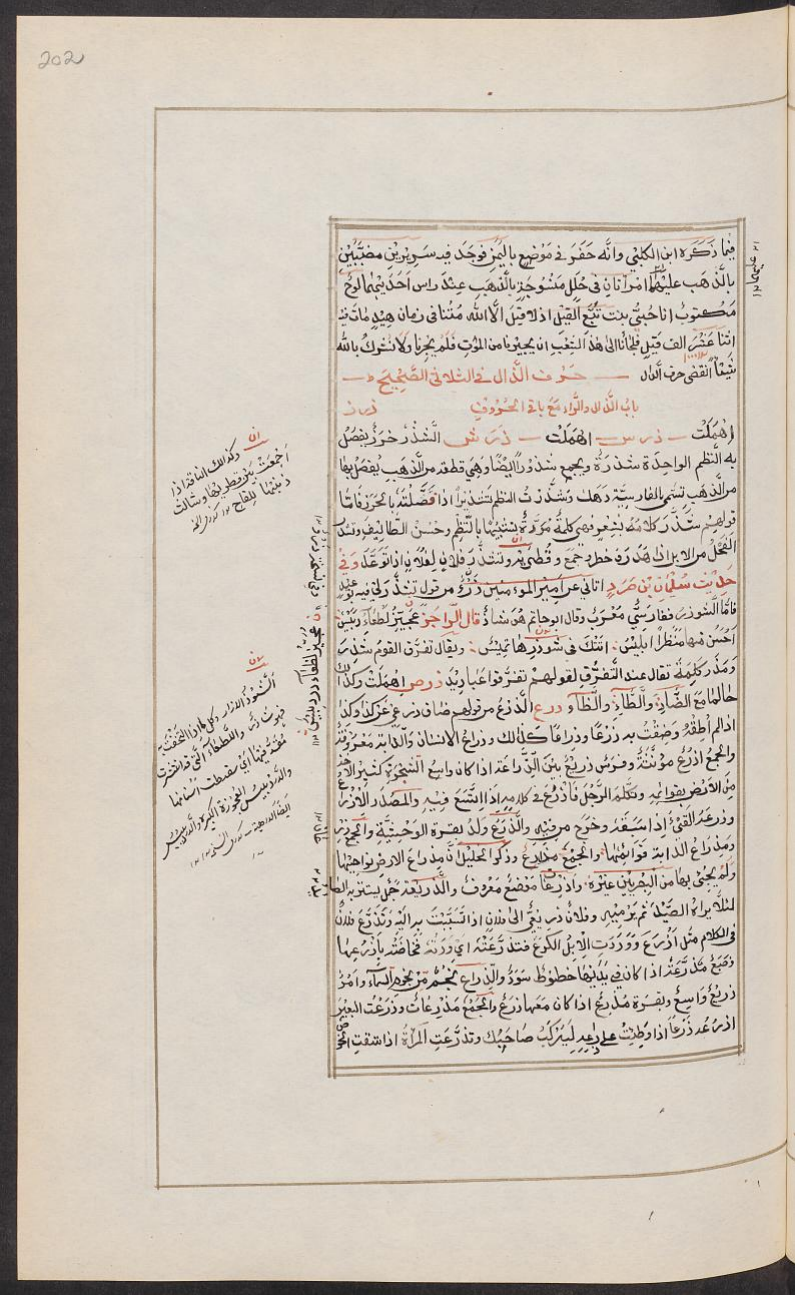 202
فيما ذكره ابن الكلبي وانّه حفر في موضع باليمن فوجد فيه سريرين مضبّبين
بالذهب عليهما امرأتان في حلل منسوجة بالذهب عند راس احديهما لوح
مكتوب انا حُبّى بنت تُبّع القيل اذ لا قيل الّا الله مُتنا في زمان هيد مات فيه
اثنا عشر الف قيل فلجأنا الى هذا الشِعب ان يجيرنا من الموت فلم يجرنا ولا نشرك بالله
شيئاً انقضى حرف الدال حرف الذال في الثلاثي الصحيح
باب الذال والراء مع باقي الحروف ذ ر ز
اهملت ذ ر س اهملت ذ ر ش الشذر خرز يفصل
به النظم الواحدة شذرة ويجمع شذوراً ايضا وهي قطعة من الذهب يفصل بها
من الذهب تسمى بالفارسيّة وشذّرت النظم تشذيراً اذا فصّلته بالخرز فامّا
قولهم شذّر كلامه بشعر فهي كلمة مولّدة تشبيها بالنظم وحسن التاليف وتشذّر
الفحل من الابل اذا هدر وخطر وجمع قُطريه وتشذّر فلان لفلان اذا توعّد وفي
حديث سليمان بن صرد اتاني عن امير المؤمنين ذرء من قول تشذّر لي فيه
فامّا الشوذر ففارسيّ معرّب وقال ابو حاتم هو شاذ قال الراجز عُجيّز لطعاء دردبيس
احسن منها منظراً ابليس اتتك في شوذرها تميس ويقال تفرّق القوم شِذَر
ومِذَر كلمة تقال عند التفرّق لقولهم تفرّقوا عباديد ذ ر ص اهملت وكذلك
حالهما مع الضاد والطاء والظاء ذ ر ع الذرع من قولهم ضاق ذرعي عن كذا وكذا
اذا لم اطقه وضقت به ذرعاً وذراعاً كذلك وذراع الانسان والدابة معروفة
والجمع اذرع مؤنثة وفرس ذريع بيّن الذراعة اذا كان واسع الشحوة كثير الاخذ
من الارض بقوائمه وتكلّم الرجل فاذرع في كلامه اذا اتسع فيه والمصدر الاذراع
وذرعه القيء اذا سبقه وخرج من فيه والذَرَع ولد بقرة الوحشيّة والجمع
ومذراع الدابة قوائمها والجمع مذارع وذكر الخليل انّ مذراع الارض نواحيها
ولم يجئ بها من البصريين غيره واذرعات موضع معروف والذريعة جمل يستتر به الصائد
لئلا يراه الصيد ثم يرميه وفلان ذريعتي الى فلان اذا تسبّبت به اليه وتذرّع فلان
في الكلام مثل اذرع ووردت الابل الكرع فتذرّعته اي وردته فخاضته باذرعها
وضبع مذرّعة اذا كان في يديها خطوط سود والذراع نجم من نجوم السماء وامر
ذريع واسع وبقرة مذرع اذا كان معها ذرع والجمع مذرعات وذرعت البعير
اذرعه ذرعاً اذا وطئت على ذراعه ليركب صاحبك وتذرّعت المرأة اذا شقت الخوص
عليهما
وكذلك الناقة اذا
اجمعت بين قطريها وشالت
ذنبها للقاح
عجيز لطعاء دردبيس
الشوذر الازار وكل ما التحفت به
فهو شوذر واللطعاء التي قد انتثر
مقدم فمها اي سقطت اسنانها
والدردبيس العجوزة الكبيرة والدردبيس
ايضا الداهية